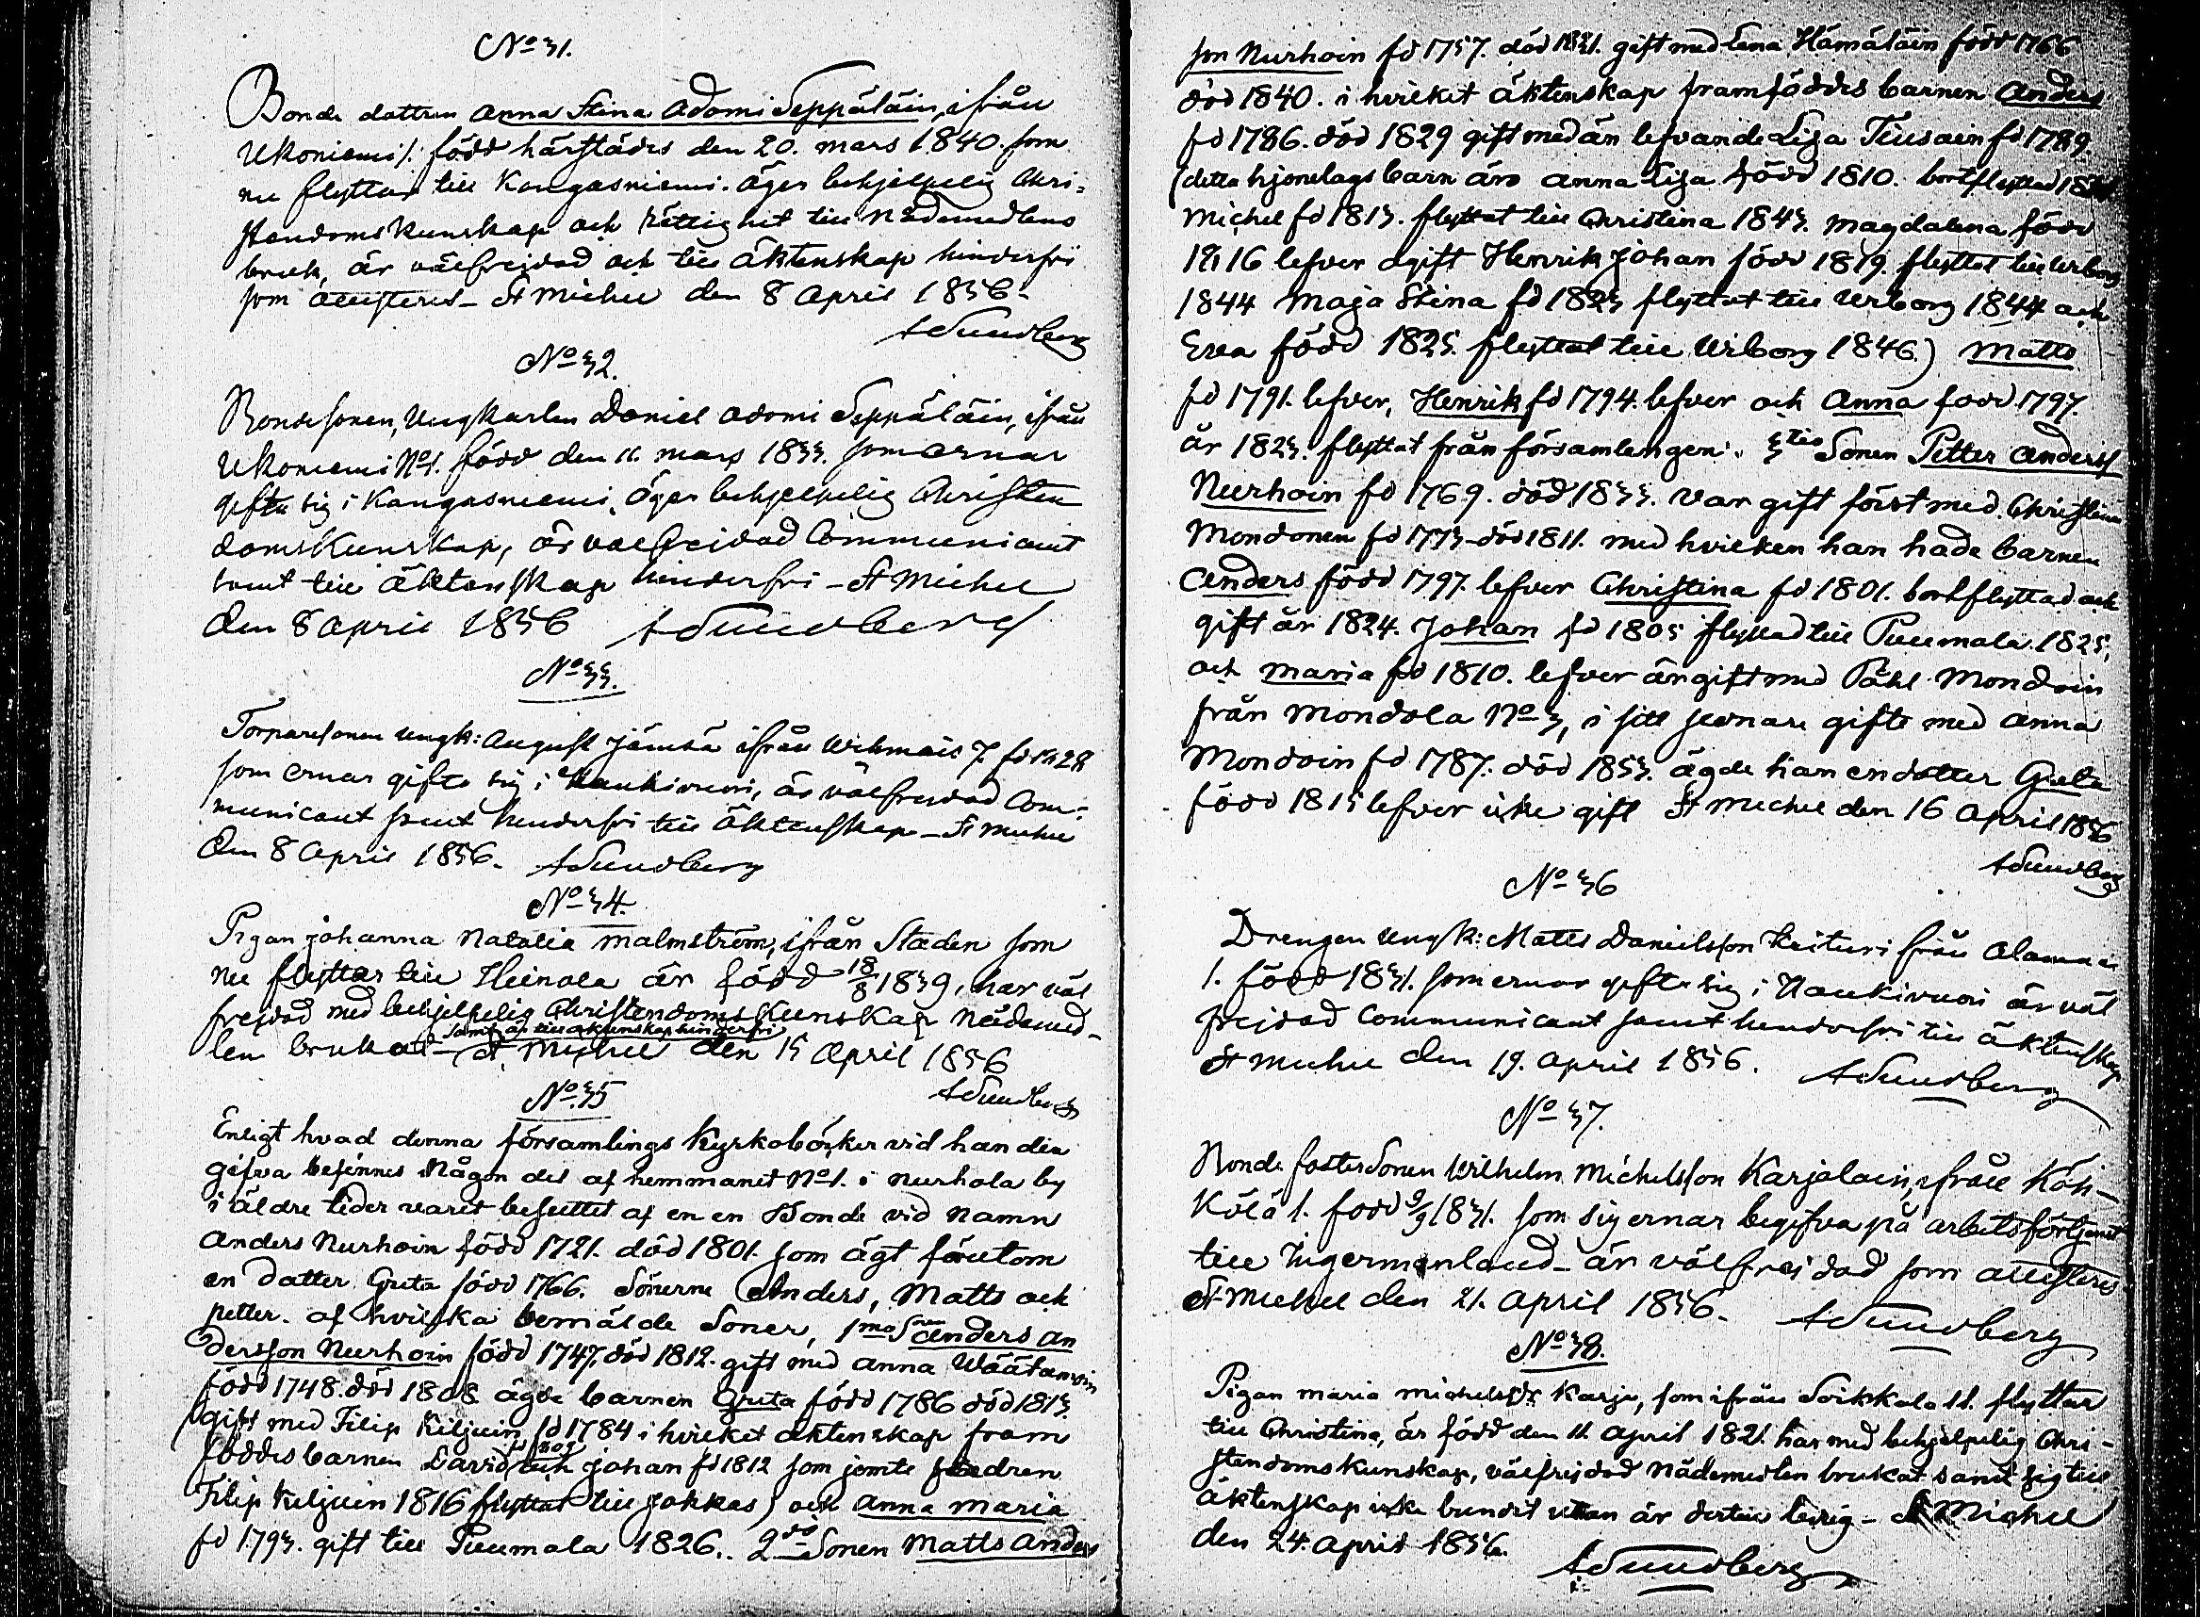 No 31.
Bonde dottren Anna Stina Adami Seppäläin, ifrån
Ukoniemi 1. född härstädes den 20. mars 1840. som
nu flyttar till Kangasniemi. äger behjelpelig Chri-
stendoms kunskap och rättighet till nådemedlens
bruk, är välfrejdad och till äktenskap hinderfri
som attesteras - St Michel den 8 April 1856 -
A Sundberg
No 32.
Bondesonen, Ungkarlen Daniel Adami Seppäläin, ifrån
Ukoniemi No 1. född den 11. mars 1833. som ärnar
gifta sig i Kangasniemi, äger behjelpelig Christen
domskunskap, är välfrejdad Communicant
samt till äktenskap hinderfri - St Michel
den 8 April 1856 A Sundberg
No 33.
Torparesonen ungk: August Jämsä ifrån Wehmais 7. fd 1828
som ernar gifta sig i Haukivuori, är välfrejdad Com-
municant samt hinderfri till äktenskap - St Michel
den 8 April 1856. A Sundberg
No 34.
Pigan Johanna Natalia Malmström, ifrån Staden som
nu flyttar till Heinola är född 18/8 1839, har väl
frejdad med behjelpelig Christendomskunskap nådemed-
samt är till äktenskap hinderfri
len brukat - St. Michel den 15 April 1856
A Sundberg
No 35
Enligt hvad denna församlings Kyrkoböcker vid handen
gifva befinnes Någon del af hemmanet No 1. i Nurhola by
i äldre tider varit besuttet af en en Bonde vid namn
Anders Nurhoin född 1721. död 1801. som ägt förutom
en dotter Greta född 1766. Sönerne Anders, Matts och
Petter. af hvilka bemälde Söner, 1mo Anders An
dersson Nurhoin född 1747. död 1812. gift med Anna Wäätämöin
född 1748. död 1808 ägde barnen Greta född 1786 död 1813.
(gift med Filip Kiljuin fd 1784 i hvilket äktenskap fram
föddes barnen David och Johan fd 1812 som jemte fadren
Filip Kiljuin 1816 flyttat till Jokkas) och Anna Maria
fd 1793. gift till Puumala 1826.. 2do Sonen Matts Anders
son Nurhoin fd 1757. död 1831. gift med Lena Hämäläin född 1766
död 1840. i hvilket äktenskap framföddes barnen Anders
fd 1786. död 1829 gift med än lefvande Lisa Teusain fd 1789.
(detta hjonelags barn äro Anna Lisa född 1810. bortflyttad
Michel fd 1813. flyttat till Christina 1843. Magdalena född
1816 lefver ogift Henrik Johan född 1819. flyttat till Wiborg
1844 Maja Stina fd 1823 flyttat till Wiborg 1844 och
Eva född 1825. flyttat till Wiborg 1846.) Matts
fd 1791. lefver, Henrik fd 1794. lefver och Anna född 1797.
år 1823. flyttat från församlingen. 3tio Sonen Petter Anderss
Nurhoin fd 1769. död 1833. var gift först med Christina
Mondonen fd 1773 - död 1811. med hvilken han hade barnen
Anders född 1797. lefver Christina fd 1801. bortflyttad och
gift år 1824. Johan fd 1805 flyttad till Puumala 1825,
och Maria fd 1810. lefver är gift med Påhl Mondoin
från Mondola No 3, i sitt sednare gifte med Anna
Mondoin fd 1787. död 1853. ägde han en dotter Greta
född 1815 lefver icke gift St Michel den 16 April 1856
A Sundberg
No 36
Drengen Ungk: Matts Danielsson Keituri från Alamaa
1. född 1831. som ernar gifta sig i Haukivuori är väl
frejdad Communicant samt hinderfri till äktenskap
St Michel den 19. April 1856. A Sundberg
No 37.
Bonde fosterSonen Wilhelm Michelsson Karjalain, ifrån Köh-
kölä 1. född 9/9 1831. som sig ernar begifva på arbetsförtjenst
till Ingermanland - är välfrejdad som attesteres
St Michel den 21. April 1856. A Sundberg
No 38.
Pigan Maria Michelsdr Karju, som ifrån Soikkala 11. flyttar
till Christina, är född den 11 April 1821. har med behjelpelig Chri-
stendomskunskap, välfrejdad nådemedlen brukat samt sig till
äktenskap icke bundit utan är dertill ledig - St Michel
den 24. April 1856.
A Sundberg